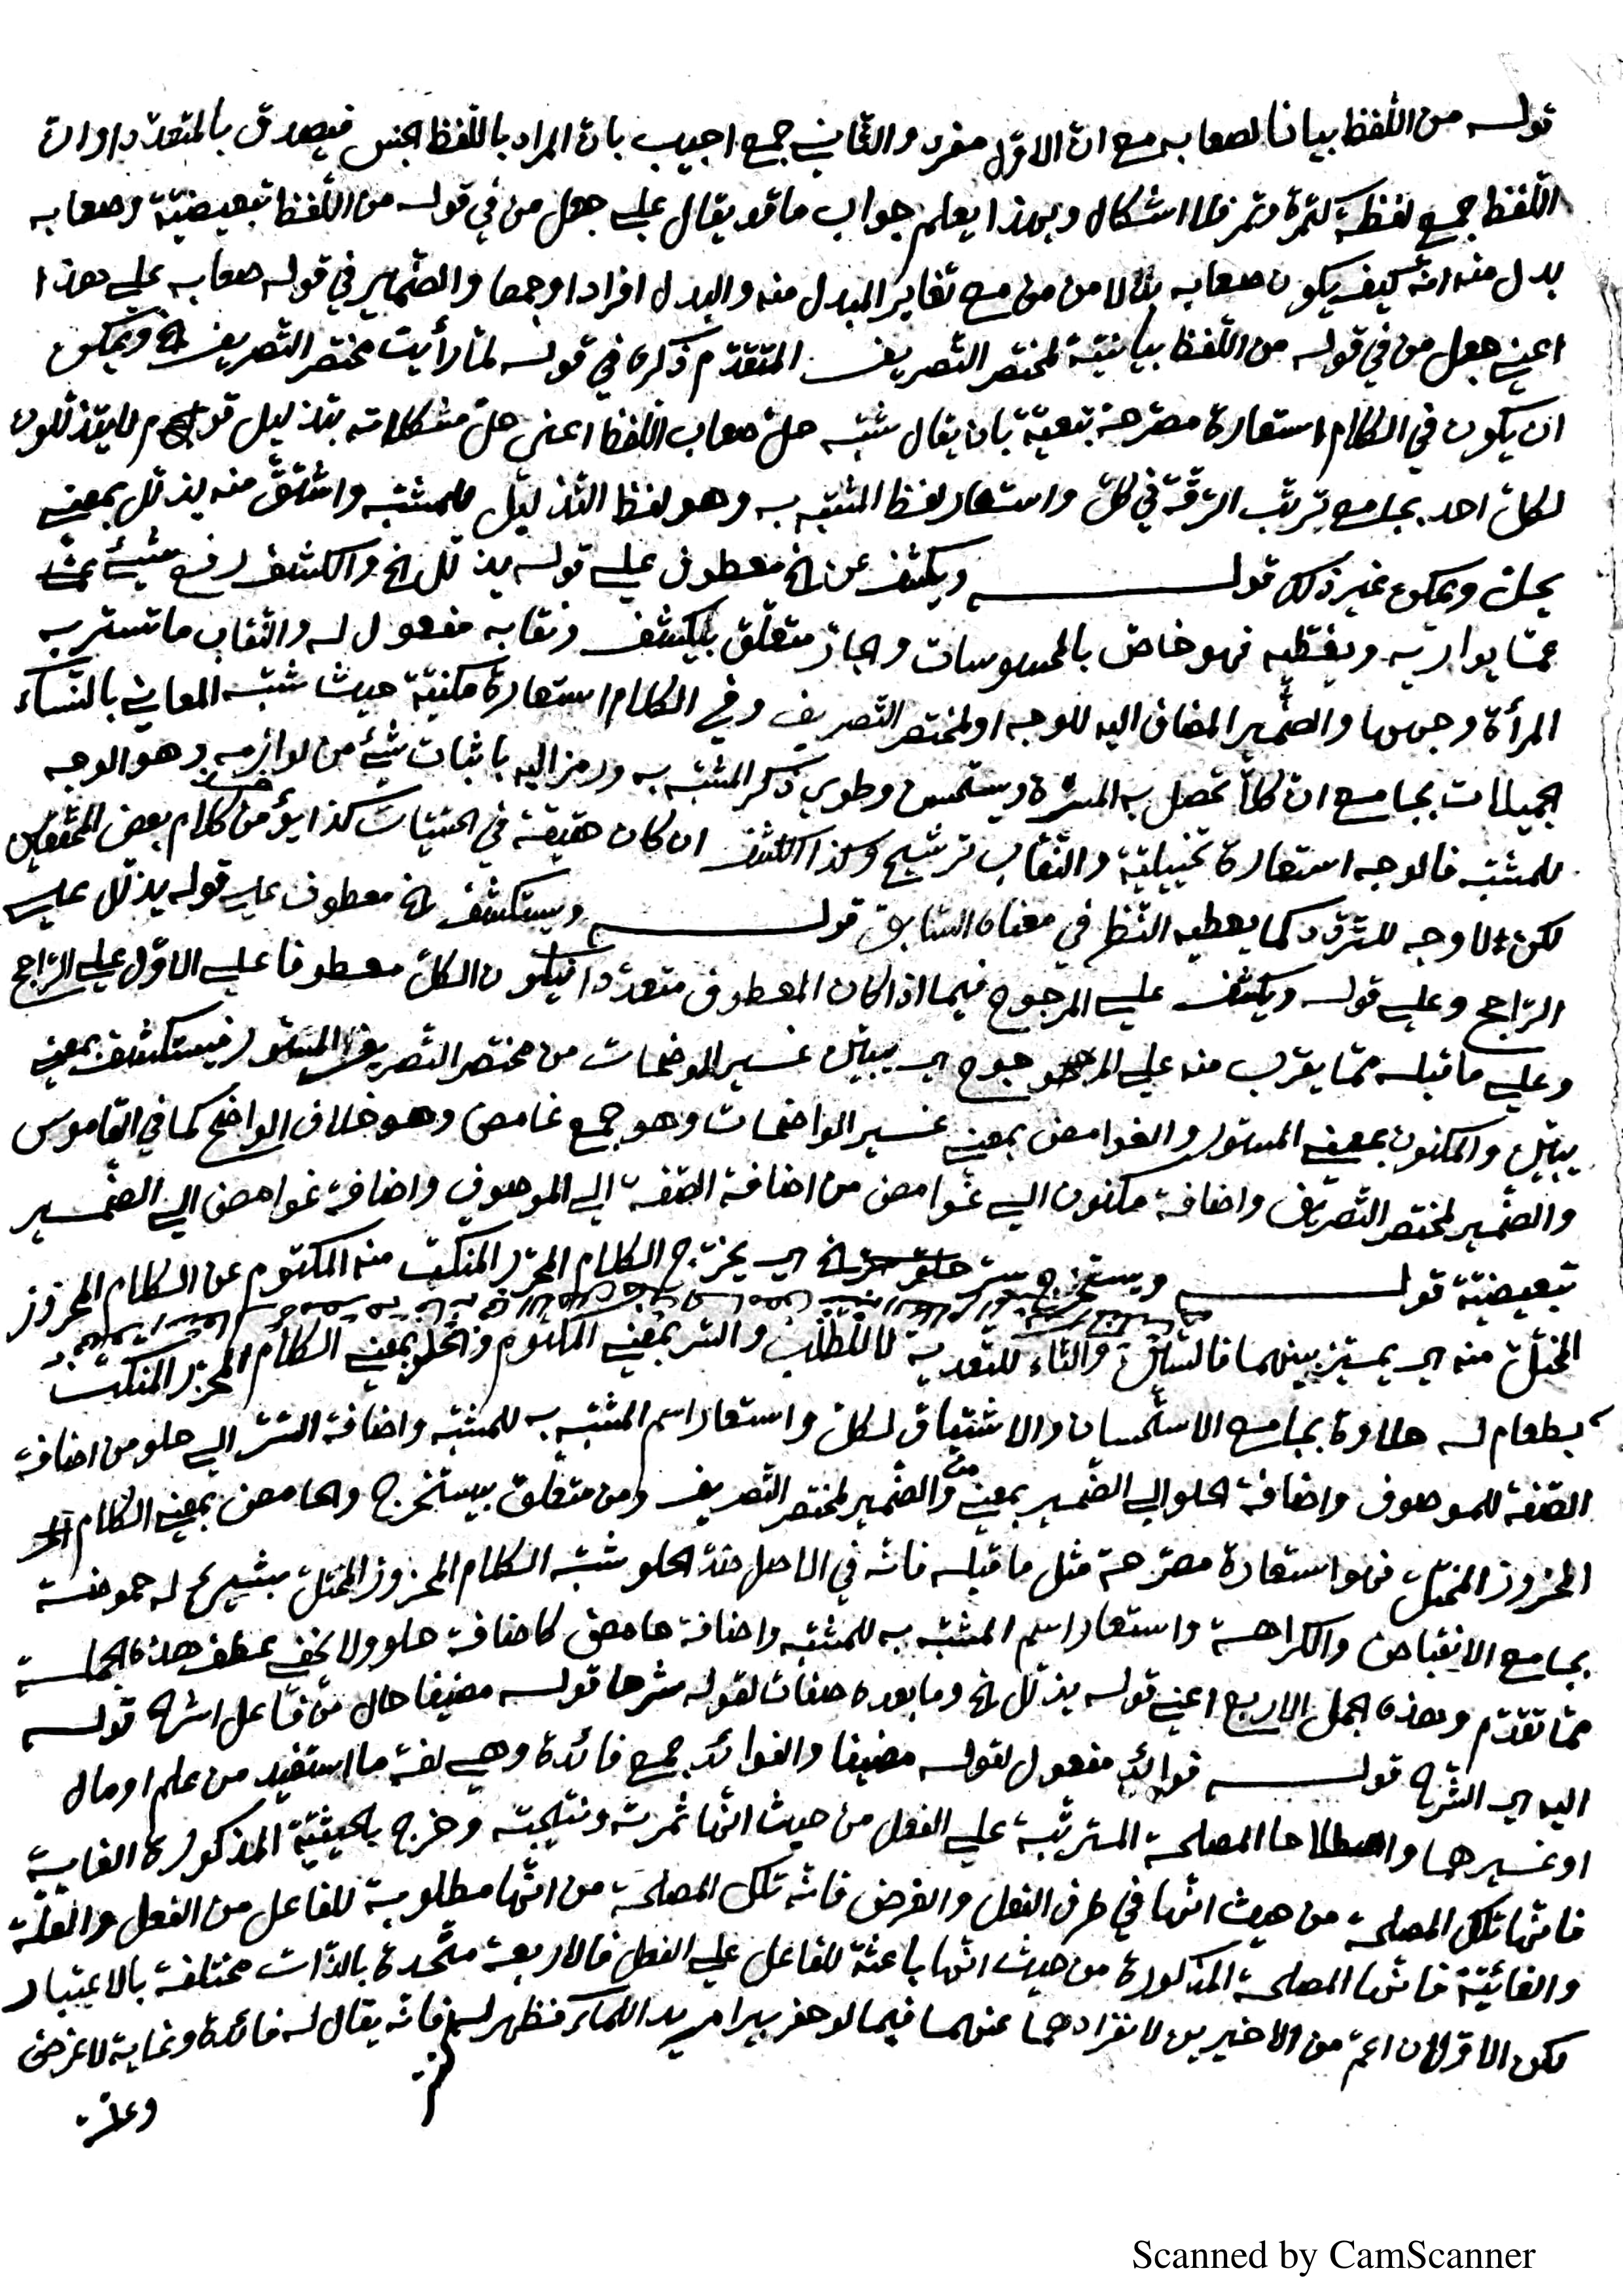 قوله من اللّفظ بيانا لصعابه مع انّ الاوّل مفرد والثّاني جمع اجيب بانّ المراد باللّفظ الجنس فيصدق بالمتعدّد او انّ
اللّفظ جمع لفظة كتمرة وتمر فلا اشكال وبهذا يعلم جواب ما قد يقال على جعل من في قوله من اللّفظ تبعيضيّة وصعابه
بدل منه انّه كيف يكون صعابه بدلا من من مع تغاير المبدل منه والبدل افرادا وجمعا والضّمير في قوله صعابه على هذا
اعني جعل من في قوله من اللّفظ بيانيّة لمختصر التّصريف المتقدّم ذكره في قوله لمّا رأيت مختصر التّصريف الخ ويمكن
ان يكون في الكلام استعارة مصرّحة تبعيّة بان يقال شبّه حلّ صعاب اللّفظ اعني حلّ مشكلاته بتذليل قوم لا يتذلّلون
لكلّ احد بجامع ترتّب الرّقّة في كلّ واستعار لفظ المشبّه به وهو لفظ التّذليل للمشبّه واشتقّ منه يذلّل بمعنى
يحلّ ويمكن غير ذلك قوله ويكشف عن الخ معطوف على قوله يذلّل الخ والكشف رفع شيئ
عمّا يواريه ويغطّيه فهو خاصّ بالمحسوسات والجارّ متعلّق بيكشف ونقابه مفعول له والنّقاب ما تستر به
المرأة وجهها والضّمير المضاف اليه للوجه او لمختصر التّصريف وفي الكلام استعارة مكنيّة حيث شبّه المعاني بالنّساء
الجميلات بجامع انّ كلاّ تحصل به المسرّة ويستحسن وطوي ذكر المشبّه به ورمز اليه باثبات شيئ من لوازمه وهو الوجه
للمشبّه فالوجه استعارة تخييليّة والنّقاب ترشيح وكذا الكشف ان كان حقيقة في الحسّيّات كذا يؤخذ من كلام بعض المحقّقين
لكن لا وجه للتّردّد كما يعطيه النّظر في معناه السّابق قوله ويستكشف الخ معطوف على قوله يذلّل على
الرّاجح وعلى قوله ويكشف على المرجوح فيما اذا كان المعطوف متعدّدا فيكون الكلّ معطوفا على الاوّل على الرّاجح
وعلى ما قبله ممّا يقرب منه على المرجوح اي يبيّن غير الموضحات من مختصر التّصريف المستور فيستكشف بمعنى
يبيّن والمكنون بمعنى المستور والغوامض بمعنى غير الواضحات وهو جمع غامض وهو خلاف الواضح كما في القاموس
والضّمير لمختصر التّصريف واضافة مكنون الى غوامض من اضافة الصّفة الى الموصوف واضافة غوامض الى الضّمير
تبعيضيّة قوله ويستخرج سرّ حلوه الخ اي يخرّج الكلام المحرّر المنكّت منه المكتوم عن الكلام المحروز
المخلّ منه اي يميّز بينهما فالسّين والتّاء للتّعدية لا للطّلب والسّر بمعنى المكتوم والحلو بمعنى الكلام المحرّر المنكّت
بطعام له حلاوة بجامع الاستحسان والاشتياق لكلّ واستعار اسم المشبّه به للمشبّه واضافة السّر الى حلو من اضافة
الصّفة للموصوف واضافة الحلو الى الضّمير بمعنى من والضّمير لمختصر التّصريف ومن متعلّق بيستخرج والحامض بمعنى الكلام
المحزوز المخلّ فهو استعارة مصرّحة مثل ما قبله فانّه في الاصل ضدّ الحلو شبّه الكلام المحزوز المخلّ بشيئ له حموضة
بجامع الانقباض والكراهة واستعار اسم المشبّه به للمشبّه واضافة حامض كاضافة حلو ولا يخفى عطف هذه الجملة
ممّا تقدّم وهذه الجمل الاربع اعني قوله يذلّل الخ وما بعده صفات لقوله شرحا قوله مضيفا حال من فاعل اشرح قوله
اليه اي الشّرح قوله فوائد مفعول لقوله مضيفا والفوائد جمع فائدة وهي لغة ما استفيد من علم او مال
او غيرهما واصطلاحا المصلحة المترتّبة على الفعل من حيث انّها ثمرته ونتيجته وخرج بالحيثيّة المذكورة الغاية
فانّها تلك المصلحة من حيث انّها في طرف الفعل والغرض فانّه تلك المصلحة من انّها مطلوبة للفاعل من الفعل والعلّة
والغائيّة فانّها المصلحة المذكورة من حيث انّها باعثة للفاعل على الفعل فالاربعة متّحدة بالذّات مختلفة بالاعتبار
لكن الاوّلان اعمّ من الاخيرين لانفرادهما عنهما فيما لو حفر بيرا مريد الماء فظهر له فانّه يقال له فائدة وغاية لا غرض
وعلّة
Scanned by CamScanner